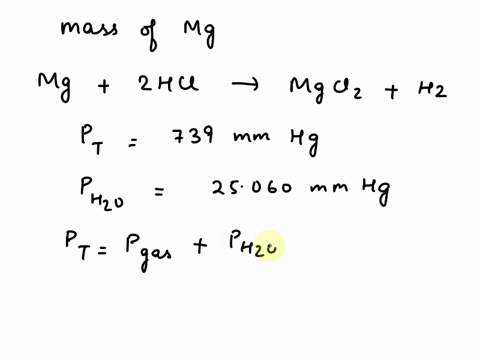 mass of Mg
Mg + 2HCl → MgCl2 + H2
PT = 739 mm Hg
PH2O = 25.060 mm Hg
PT = Pgas + PH2O